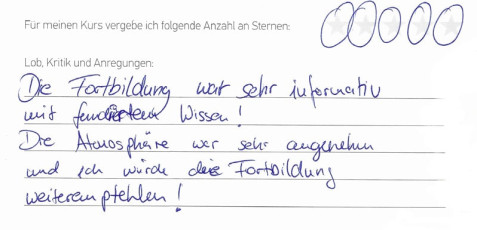 Für meinen Kurs vergebe ich folgende Anzahl an Sternen:
Lob, Kritik und Anregungen:
Die Fortbildung war sehr informativ
mit fundiertem Wissen!
Die Atmosphäre war sehr angenehm
und ich würde die Fortbildung
weiterempfehlen!